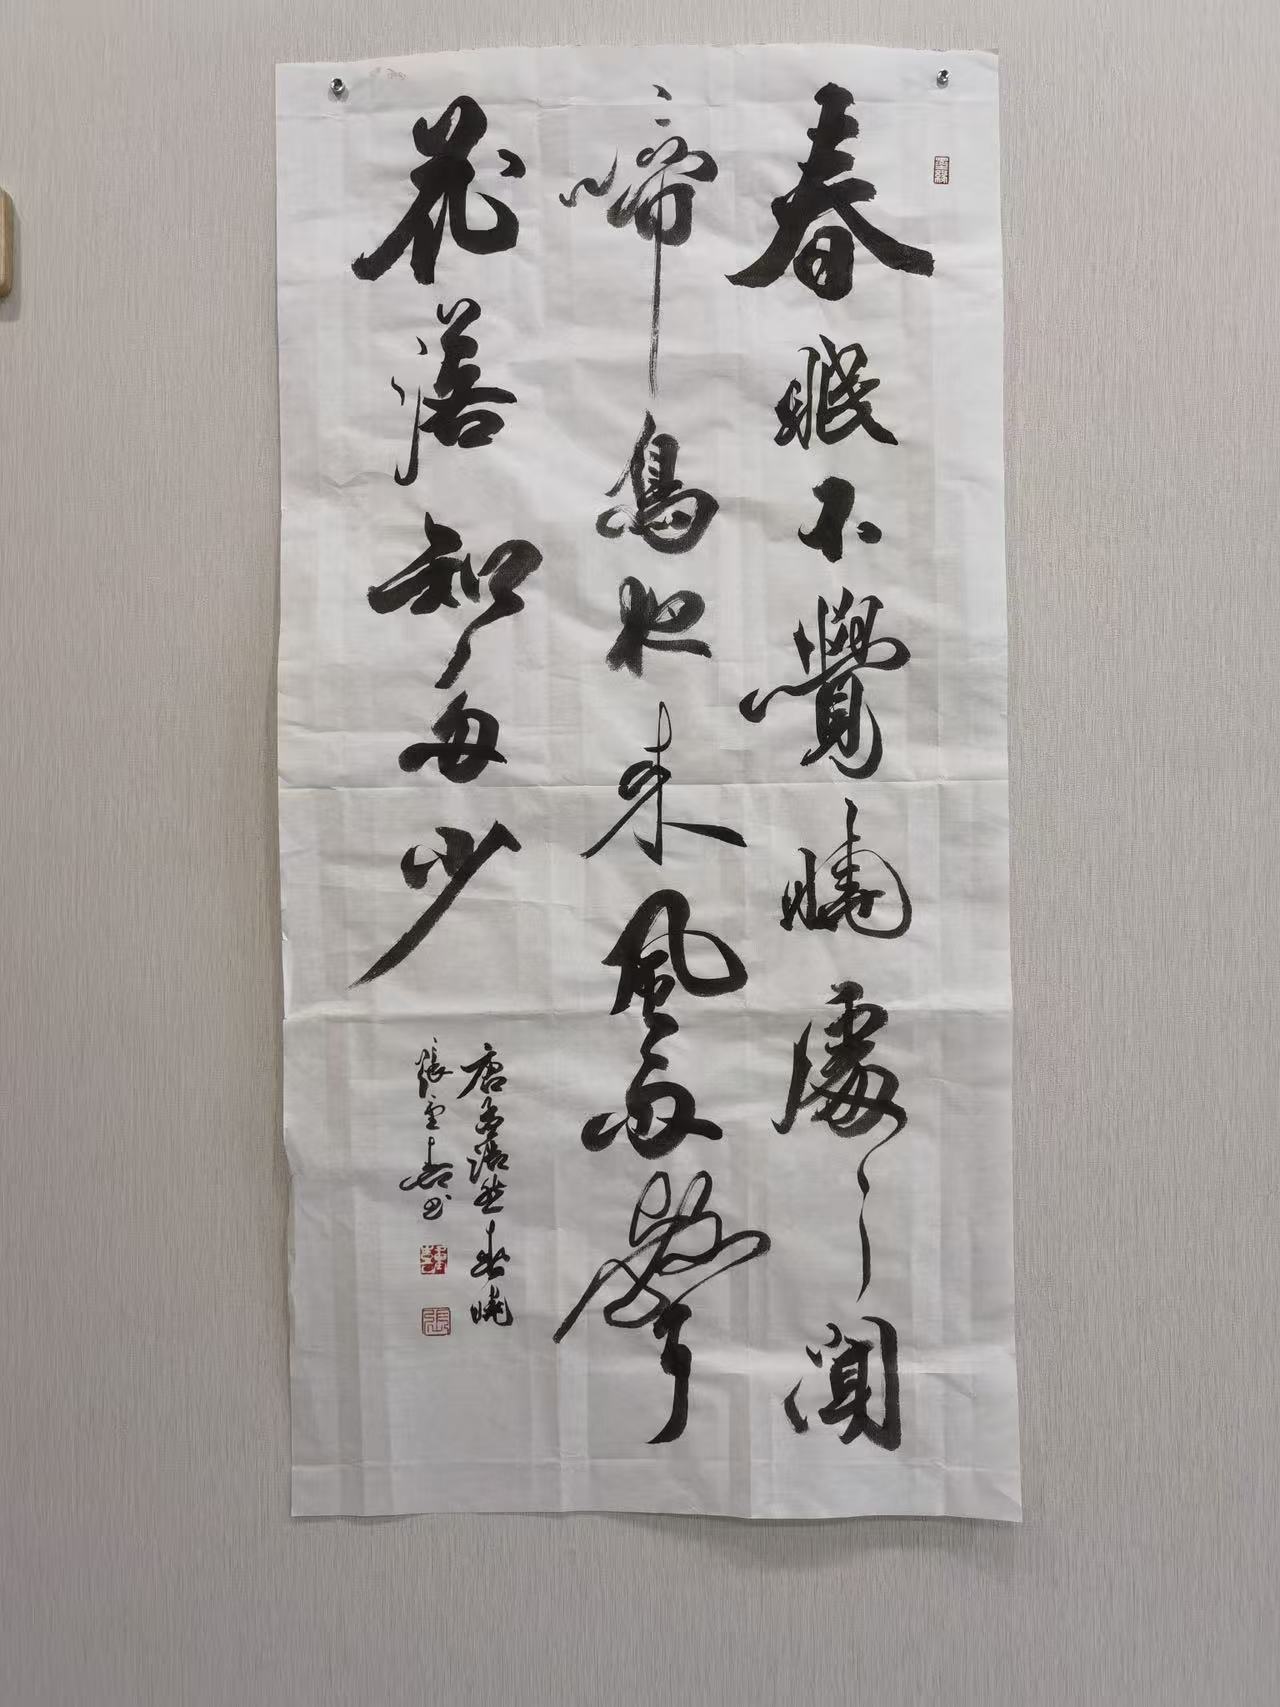 春眠不覺曉處〻聞
啼鳥夜来風雨聲
花落知多少
唐孟浩然春曉
張雲春书
張